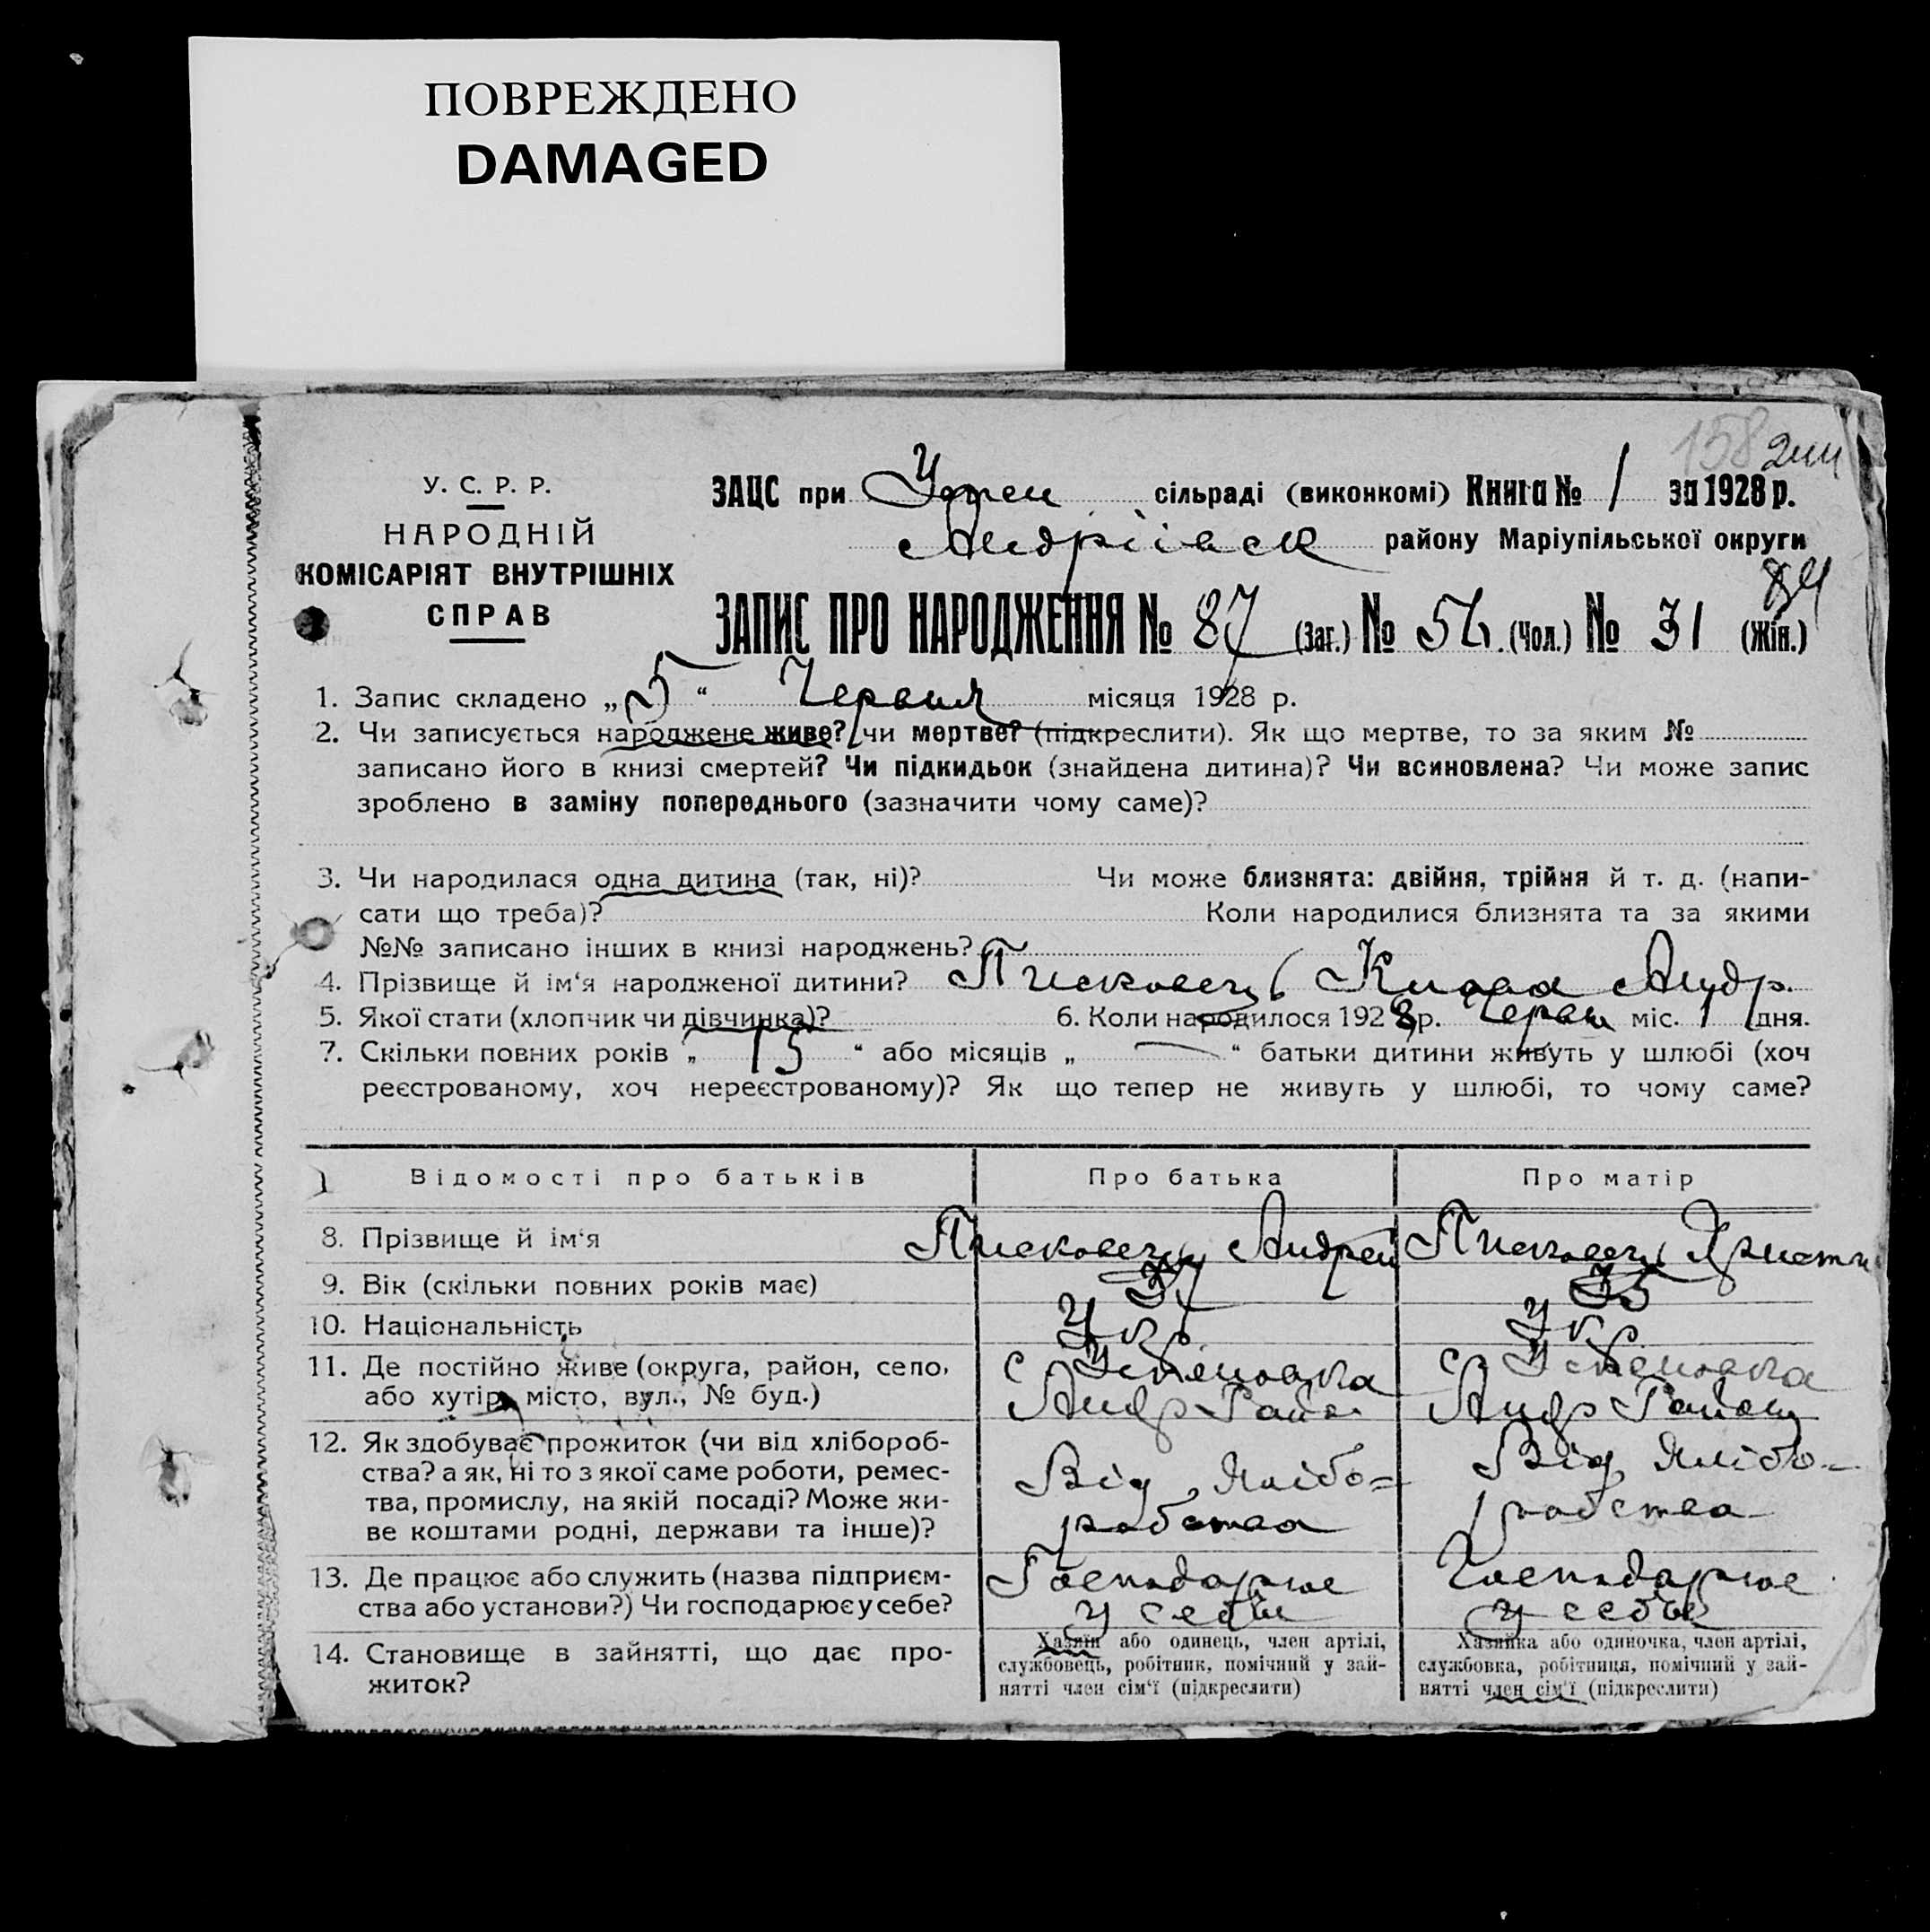 ПОВРЕЖДЕНО
DAMAGED
158
У. С. Р. Р.
НАРОДНІЙ
КОМІСАРІЯТ ВНУТРІШНІХ
СПРАВ
ЗАЦС при Успен сільраді (виконкомі) Книга № 1 за 1928 р.
Андріівск району Маріупільської округи
84
ЗАПИС ПРО НАРОДЖЕННЯ № 87 (Заг.) № 56 (Чол.) № 31 (Жін.)
1. Запис складено „5“ Червня місяця 1928 р.
2. Чи записується народжене живе? чи мертве? (підкреслити). Як що мертве, то за яким №
записано його в книзі смертей? Чи підкидьок (знайдена дитина)? Чи всиновлена? Чи може запис
зроблено в заміну попереднього (зазначити чому саме)?
3. Чи народилася одна дитина (так, ні)? Чи може близнята: двійня, трійня й т. д. (напи-
сати що треба)? Коли народилися близнята та за якими
№№ записано інших в книзі народжень?
4. Прізвище й ім‘я народженої дитини? Писковец Андр.
5. Якої стати (хлопчик чи дівчинка)? 6. Коли народилося 1928 р. Червня міс. 1 дня.
7. Скільки повних років „ 15 “ або місяців „ — “ батьки дитини живуть у шлюбі (хоч
реєстрованому, хоч нереєстрованому)? Як що тепер не живуть у шлюбі, то чому саме?
Відомості про батьків Про батька Про матір
8. Прізвище й ім‘я Писковец Андрей Писковец Христи
9. Вік (скільки повних років має) 37 35
10. Національність Укр Укр
11. Де постійно живе (округа, район, село, с Успеновка с Успеновка
або хутір, місто, вул., № буд.) Андр Район Андр Району
12. Як здобуває прожиток (чи від хлібороб-
ства? а як, ні то з якої саме роботи, ремес- Від Хлібо- Від Хлібо-
тва, промислу, на якій посаді? Може жи- робства робства
ве коштами родні, держави та інше)?
13. Де працює або служить (назва підприєм- Господарює Господарює
ства або установи?) Чи господарює у себе? у себы у себы
14. Становище в зайнятті, що дає про-
житок?
Хазяїн або одинець, член артілі,
службовець, робітник, помічний у зай-
нятті член сім‘ї (підкреслити)
Хазяйка або одиночка, член артілі,
службовка, робітниця, помічний у зай-
нятті член сім‘ї (підкреслити)